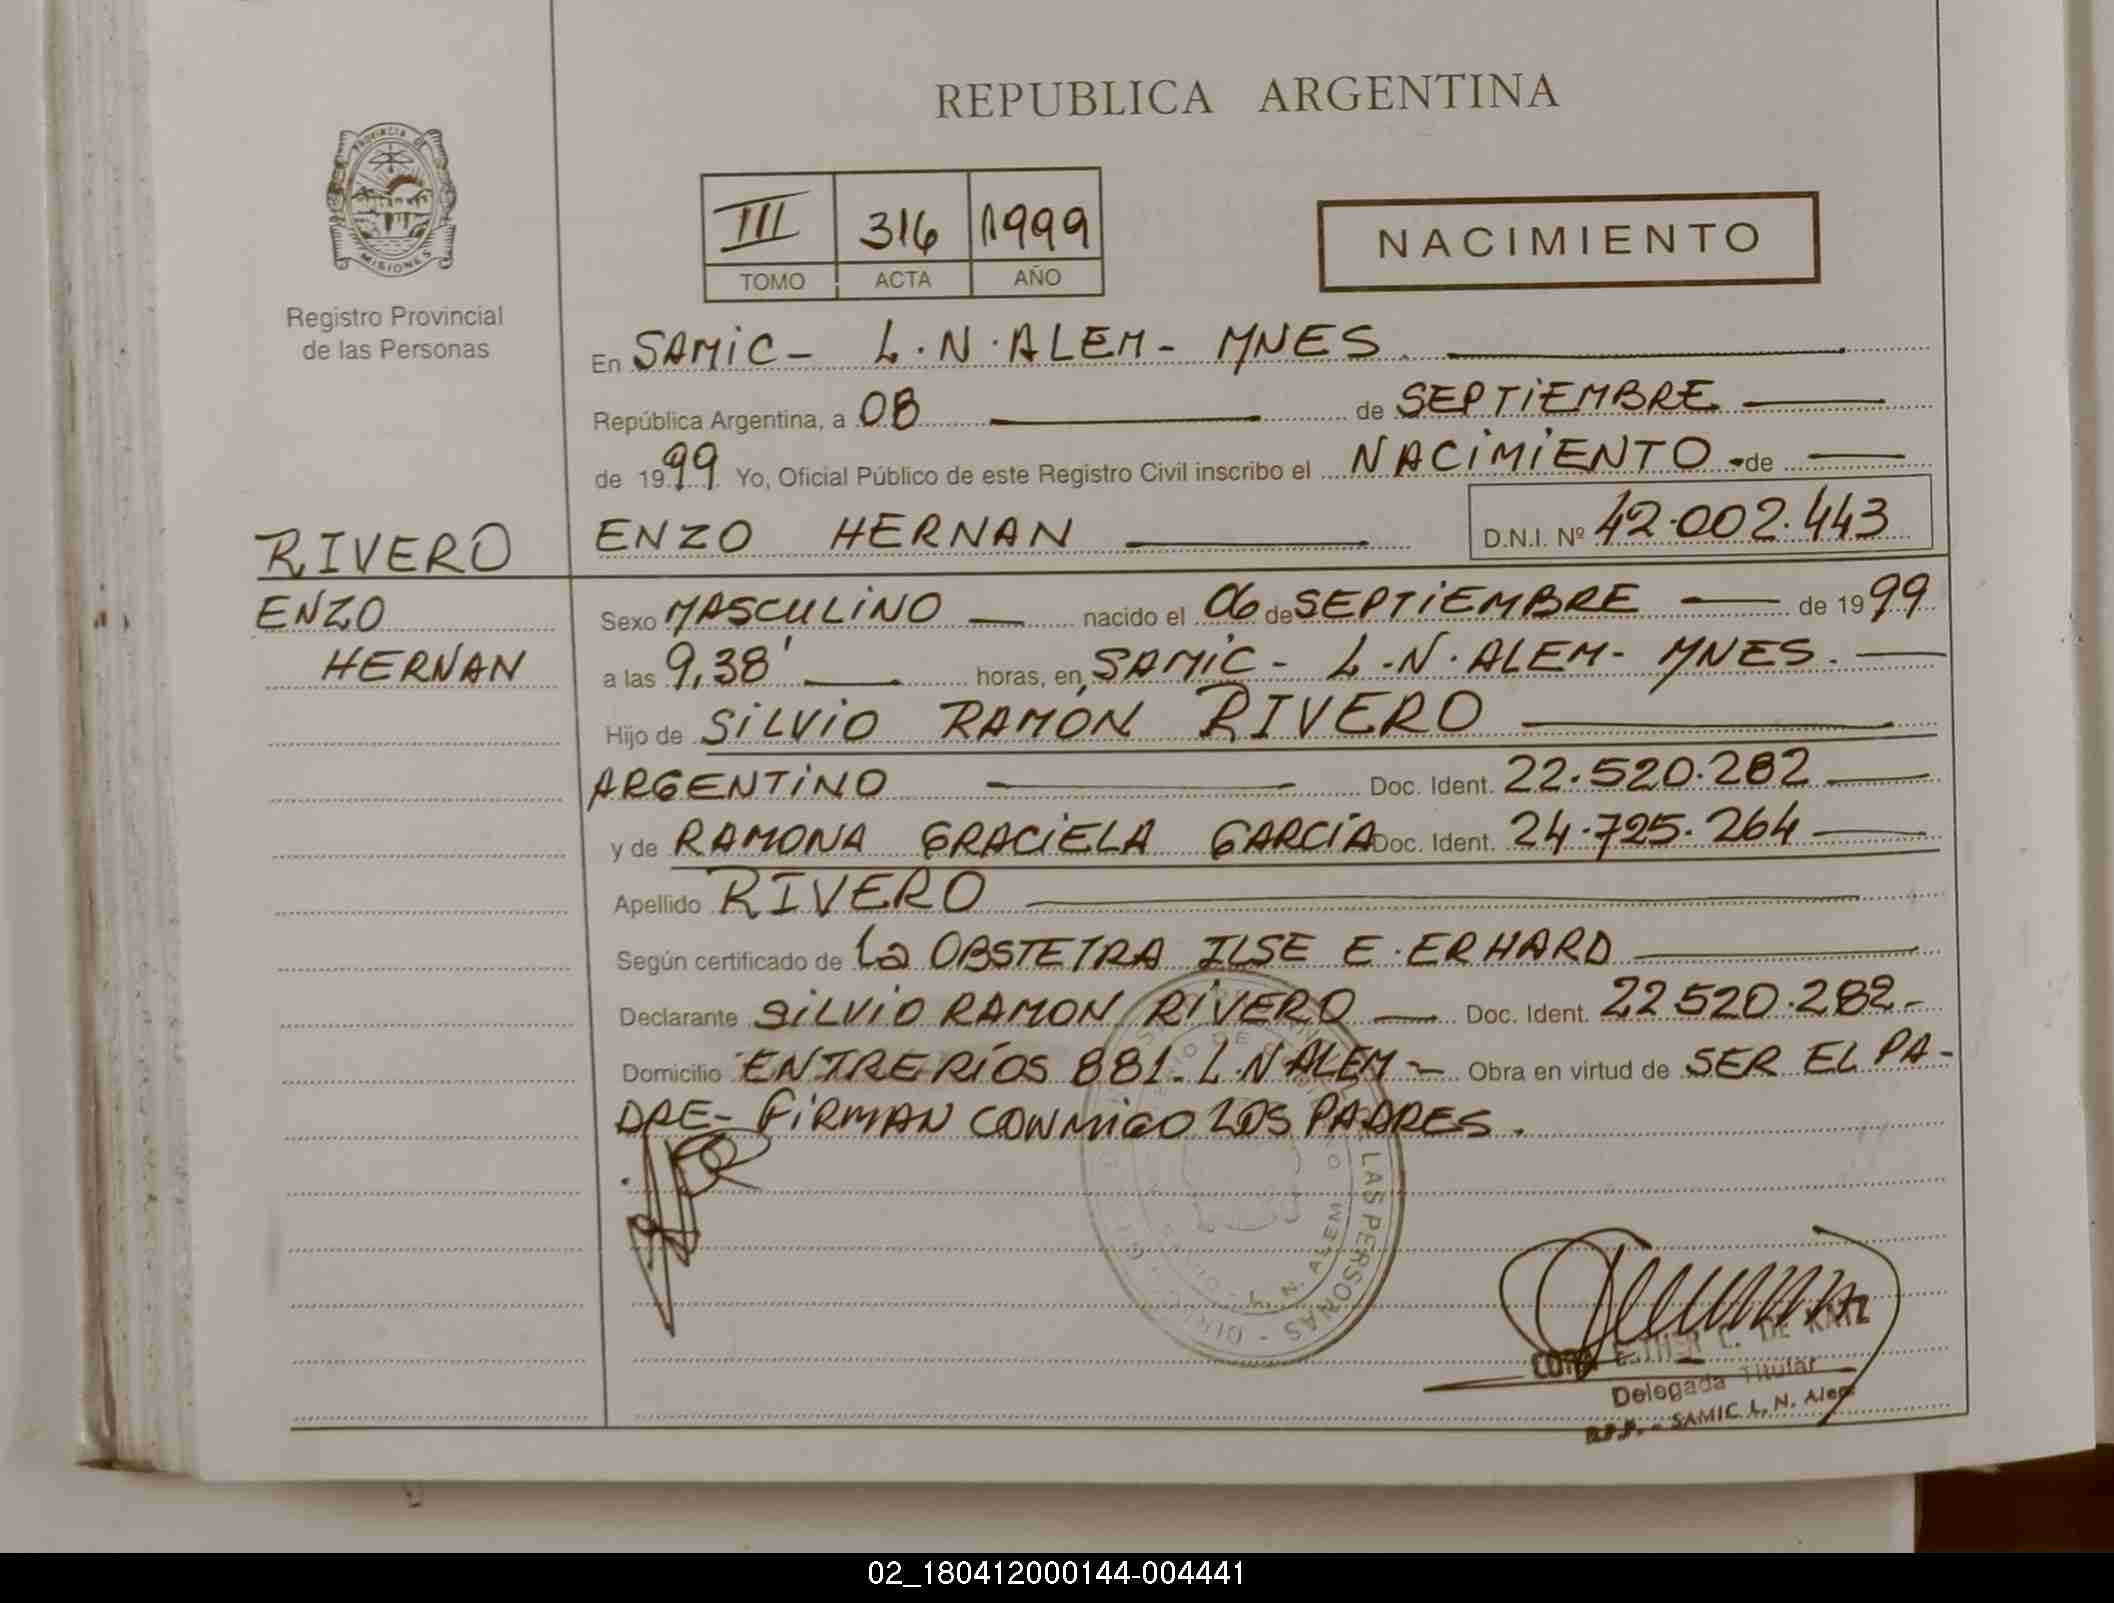 REPUBLICA ARGENTINA
PROVINCIA DE
MISIONES
Registro Provincial
de las Personas
III 316 1999
TOMO ACTA AÑO
NACIMIENTO
En SAMIC - L.N.ALEM - MNES.
República Argentina, a 08 de SEPTIEMBRE
de 1999 Yo, Oficial Público de este Registro Civil inscribo el NACIMIENTO de
RIVERO ENZO HERNAN D.N.I. Nº 42.002.443
ENZO Sexo MASCULINO nacido el 06 de SEPTIEMBRE de 1999
HERNAN a las 9,38' horas, en SAMIC - L.N.ALEM - MNES.
Hijo de SILVIO RAMÓN RIVERO
ARGENTINO Doc. Ident. 22.520.282
y de RAMONA GRACIELA GARCÍA Doc. Ident. 24.725.264
Apellido RIVERO
Según certificado de La OBSTETRA ILSE E. ERHARD
Declarante SILVIO RAMON RIVERO Doc. Ident. 22520.282.-
Domicilio ENTRE RÍOS 881. L.N ALEM - Obra en virtud de SER EL PA-
DRE - FIRMAN CONMIGO LOS PADRES.
LAS PERSONAS
L. N. ALEM
ESTHER C. DE KATZ
Delegada Titular
R.P.P. - SAMIC L. N. Alem
02_180412000144-004441